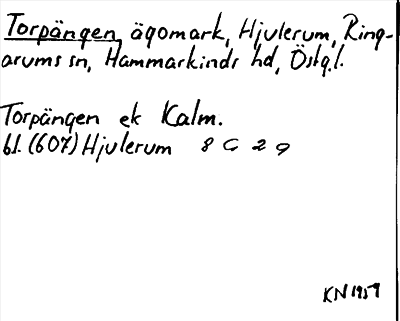 Torpängen, ägomark, Hjulerum, Ring-
arums sn, Hammarkinds hd, Östg.l.
Torpängen ek Kalm.
bl. (607) Hjulerum 8 G 2 g
KN 1959